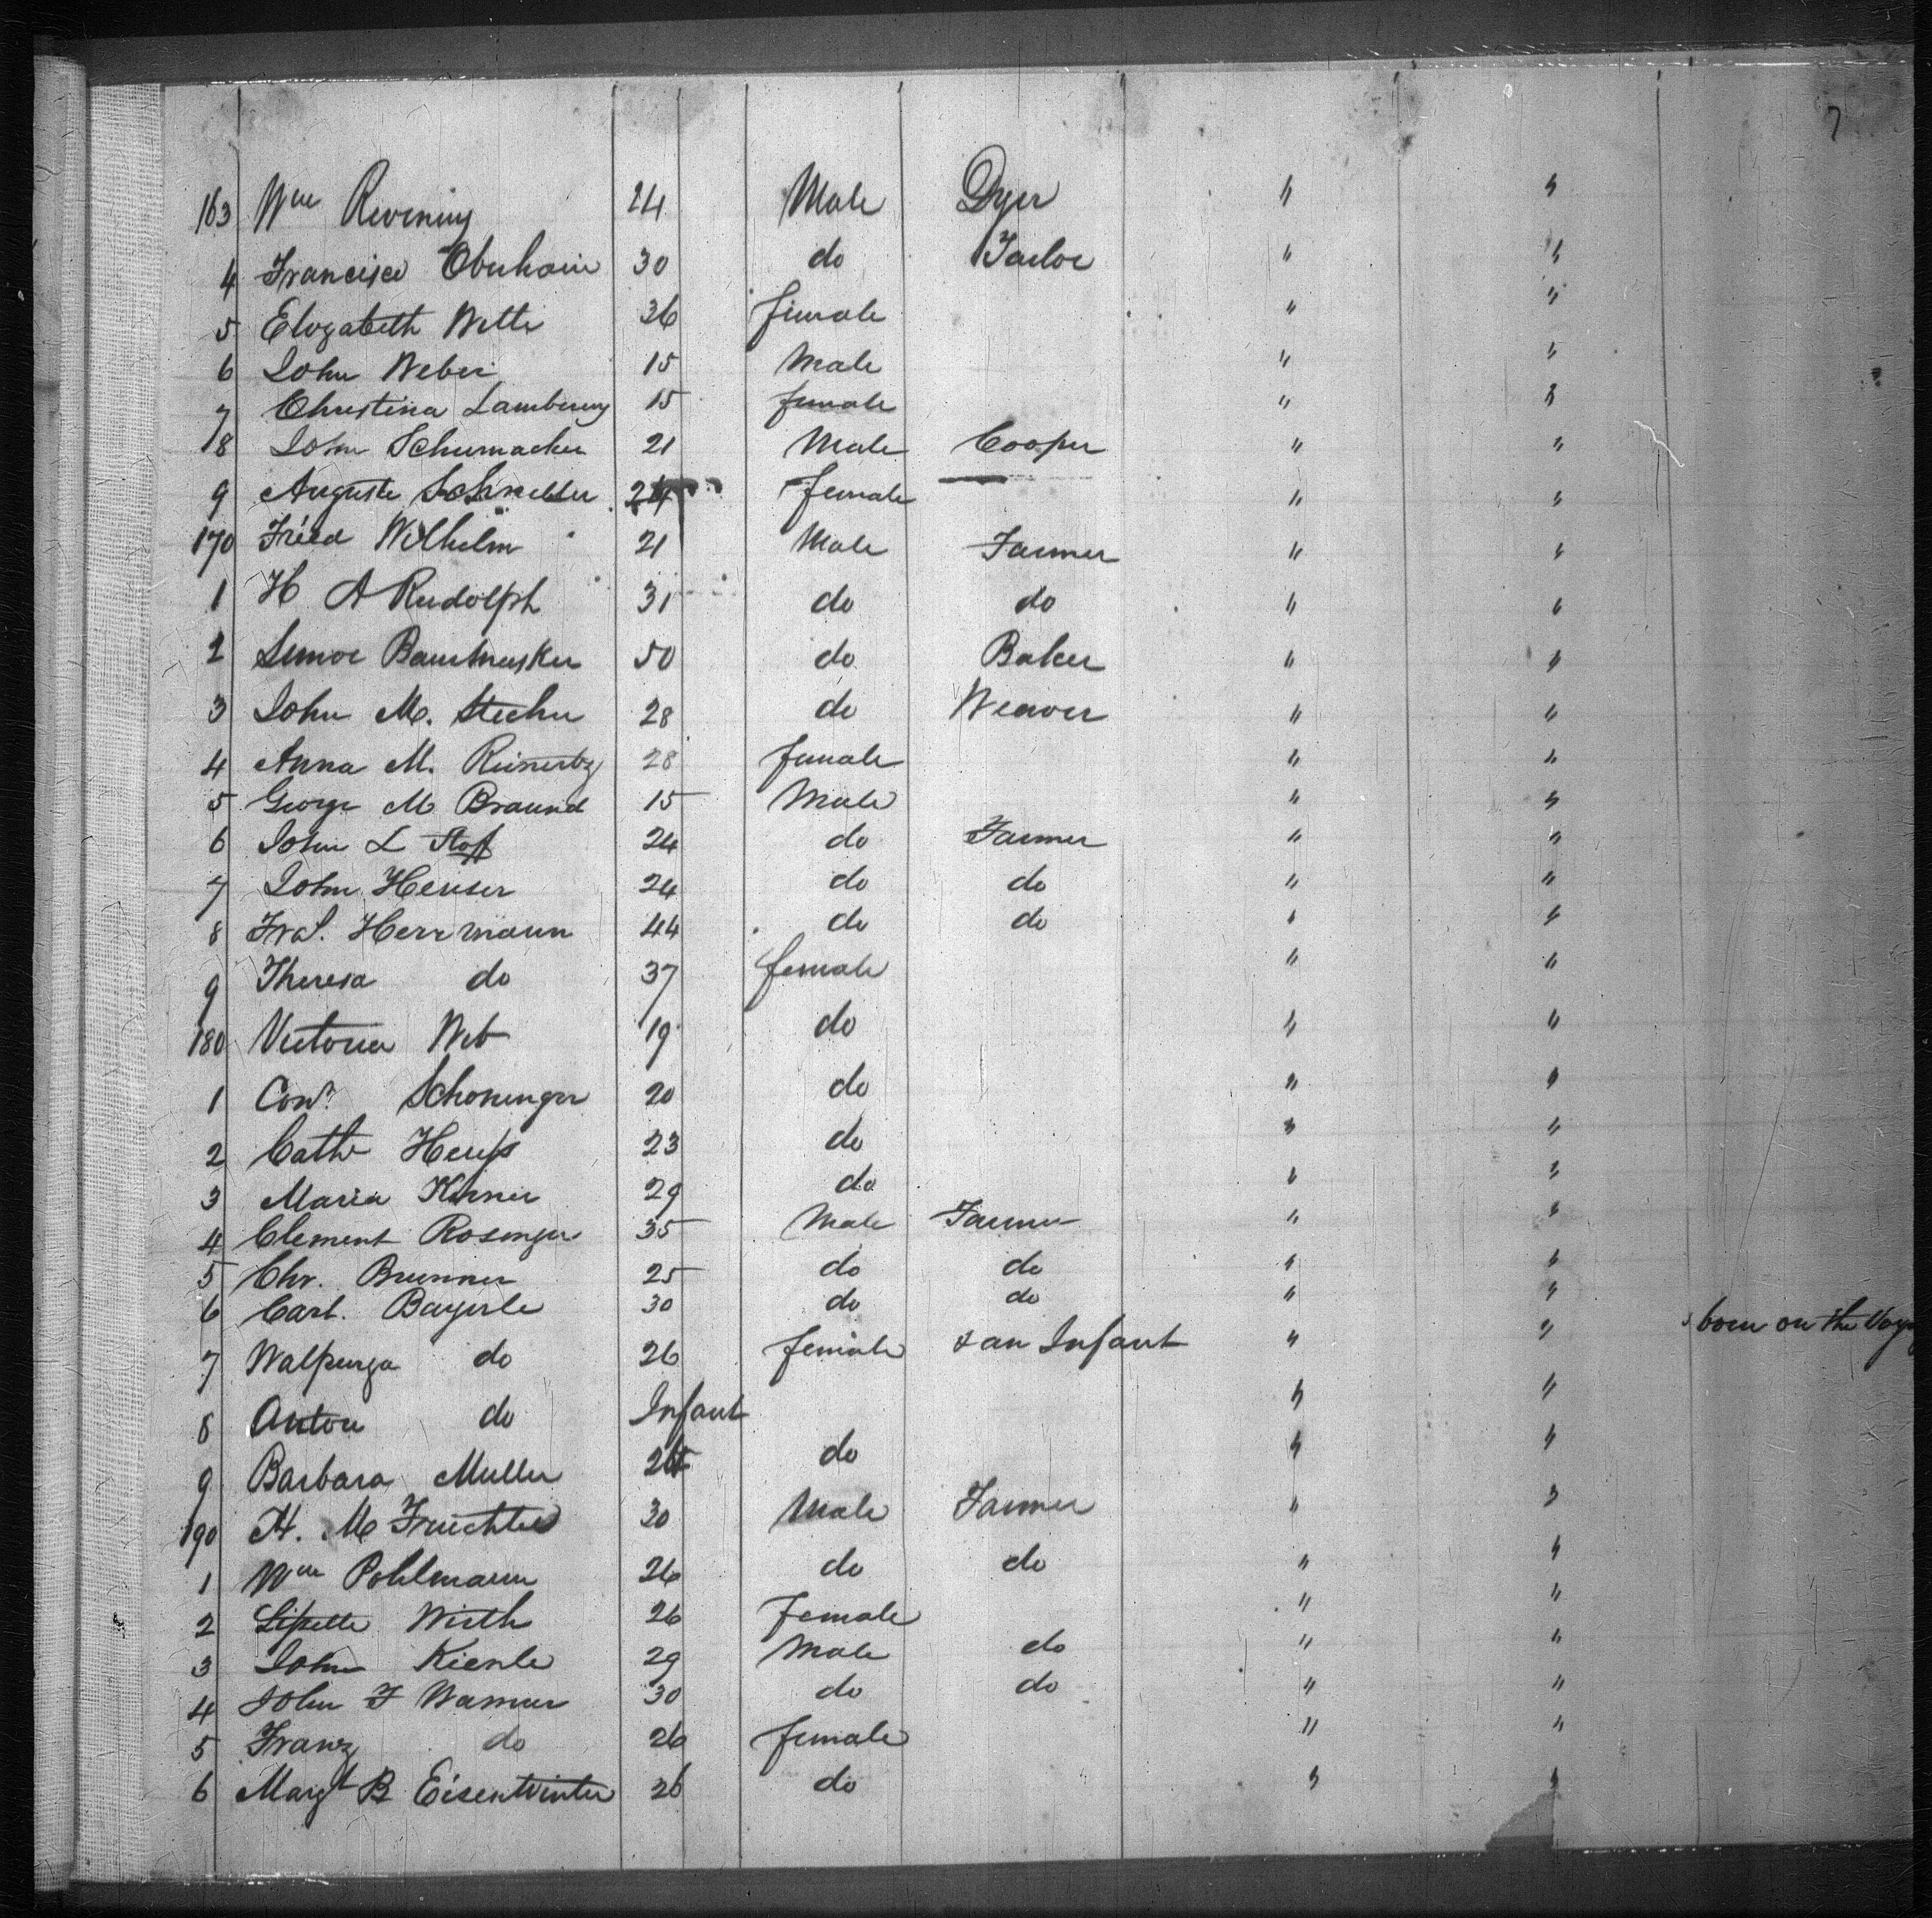 7
163 Wm Revening 24 Male Dyer " "
4 Francisco Oberhain 30 do Tailor " "
5 Elizabeth Witte 36 female " "
6 John Weber 15 Male " "
7 Christina Lambereng 15 female " "
8 John Schumacker 21 Male Cooper " "
9 Auguste Schneller 24 female " "
170 Fried Wilhelm 21 Male Farmer " "
1 H A Rudolph 31 do do " "
2 50 do Baker " "
3 John M. Stecher 28 do Weaver " "
4 Anna M. Reinertz 28 female " "
5 George M Braund 15 Male " "
6 John L Stoff 24 do Farmer " "
7 John Heuser 24 do do " "
8 Fras. Herrmann 44 do do " "
9 Theresa do 37 female " "
180 Victoria Web 19 do " "
1 Cond. Schoninger 20 do " "
2 Cathe 23 do " "
3 Maria Kerner 29 do " "
4 Clement Rosenger 35 Male Farmer " "
5 Chr. Brunner 25 do do " "
6 Carl. Bayerle 30 do do " "
7 Walpurga do 26 female & an Infant " " born on the Voy
8 Anton do Infant " "
9 Barbara Muller do " "
190 H. M Fruchte 30 Male Farmer " "
1 Wm Pohlmann 26 do do " "
2 Lisette Wirth 26 Female " "
3 John Kienle 29 Male do " "
4 John F Wamser 30 do do " "
5 Franz do 26 female " "
6 Margt B Eisentwinter 26 do " "